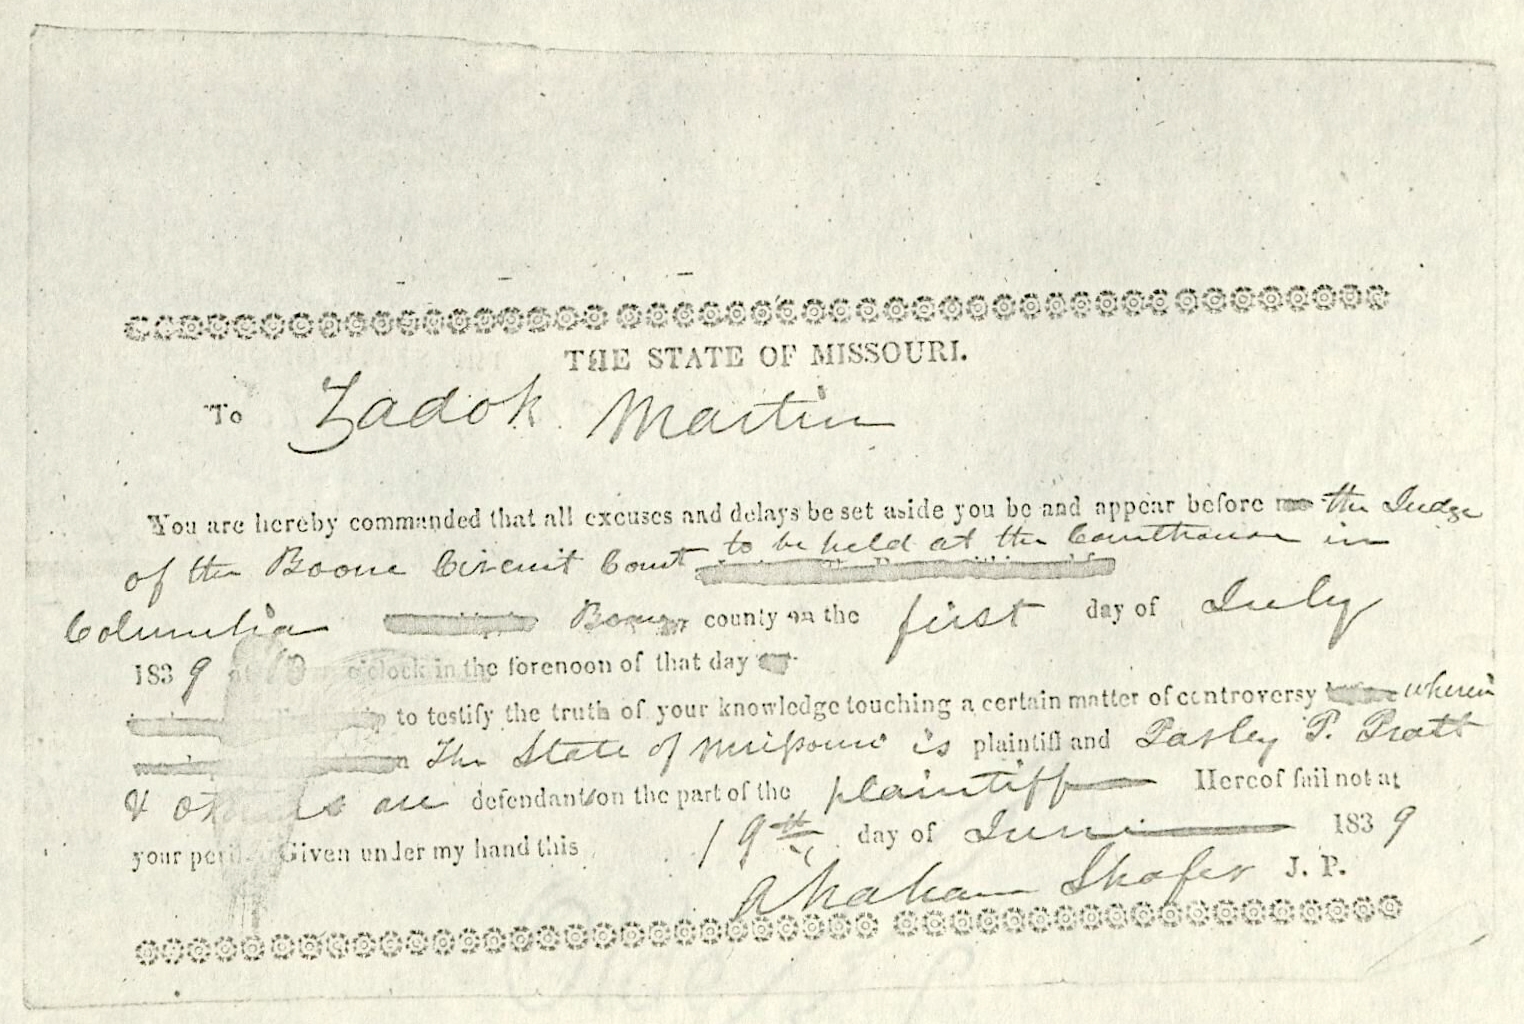 THE STATE OF MISSOURI.
To Zadok Martin
You are hereby commanded that all excuses and delays be set aside you be and appear before the Judge
of the Boone Circuit Court to be held at the Courthouse in
Columbia Boone county on the first day of July
1839 at 10 o'clock in the forenoon of that day
to testify the truth of your knowledge touching a certain matter of controversy wherein
The State of Missouri is plaintiff and Parley P. Pratt
& others are defendants on the part of the plaintiff Hereof fail not at
your peril. Given under my hand this 19th day of June 1839
Abraham Shafer J. P.